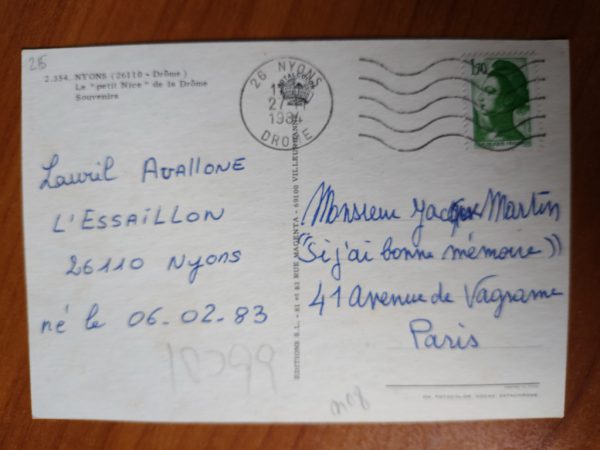 25
2.354. NYONS (26110 - Drôme)
Le "petit Nice" de la Drôme
Souvenirs
26 NYONS
27
1984
DROME
1,70
Lauril AVALLONE
L'ESSAILLON
26110 Nyons
né le 06-02-83
EDITIONS S.L. - 81 et 83 RUE MAGENTA - 69100 VILLEURBANNE
Monsieur Jacques Martin
"Si j'ai bonne mémoire"
41 Avenue de Vagrame
Paris